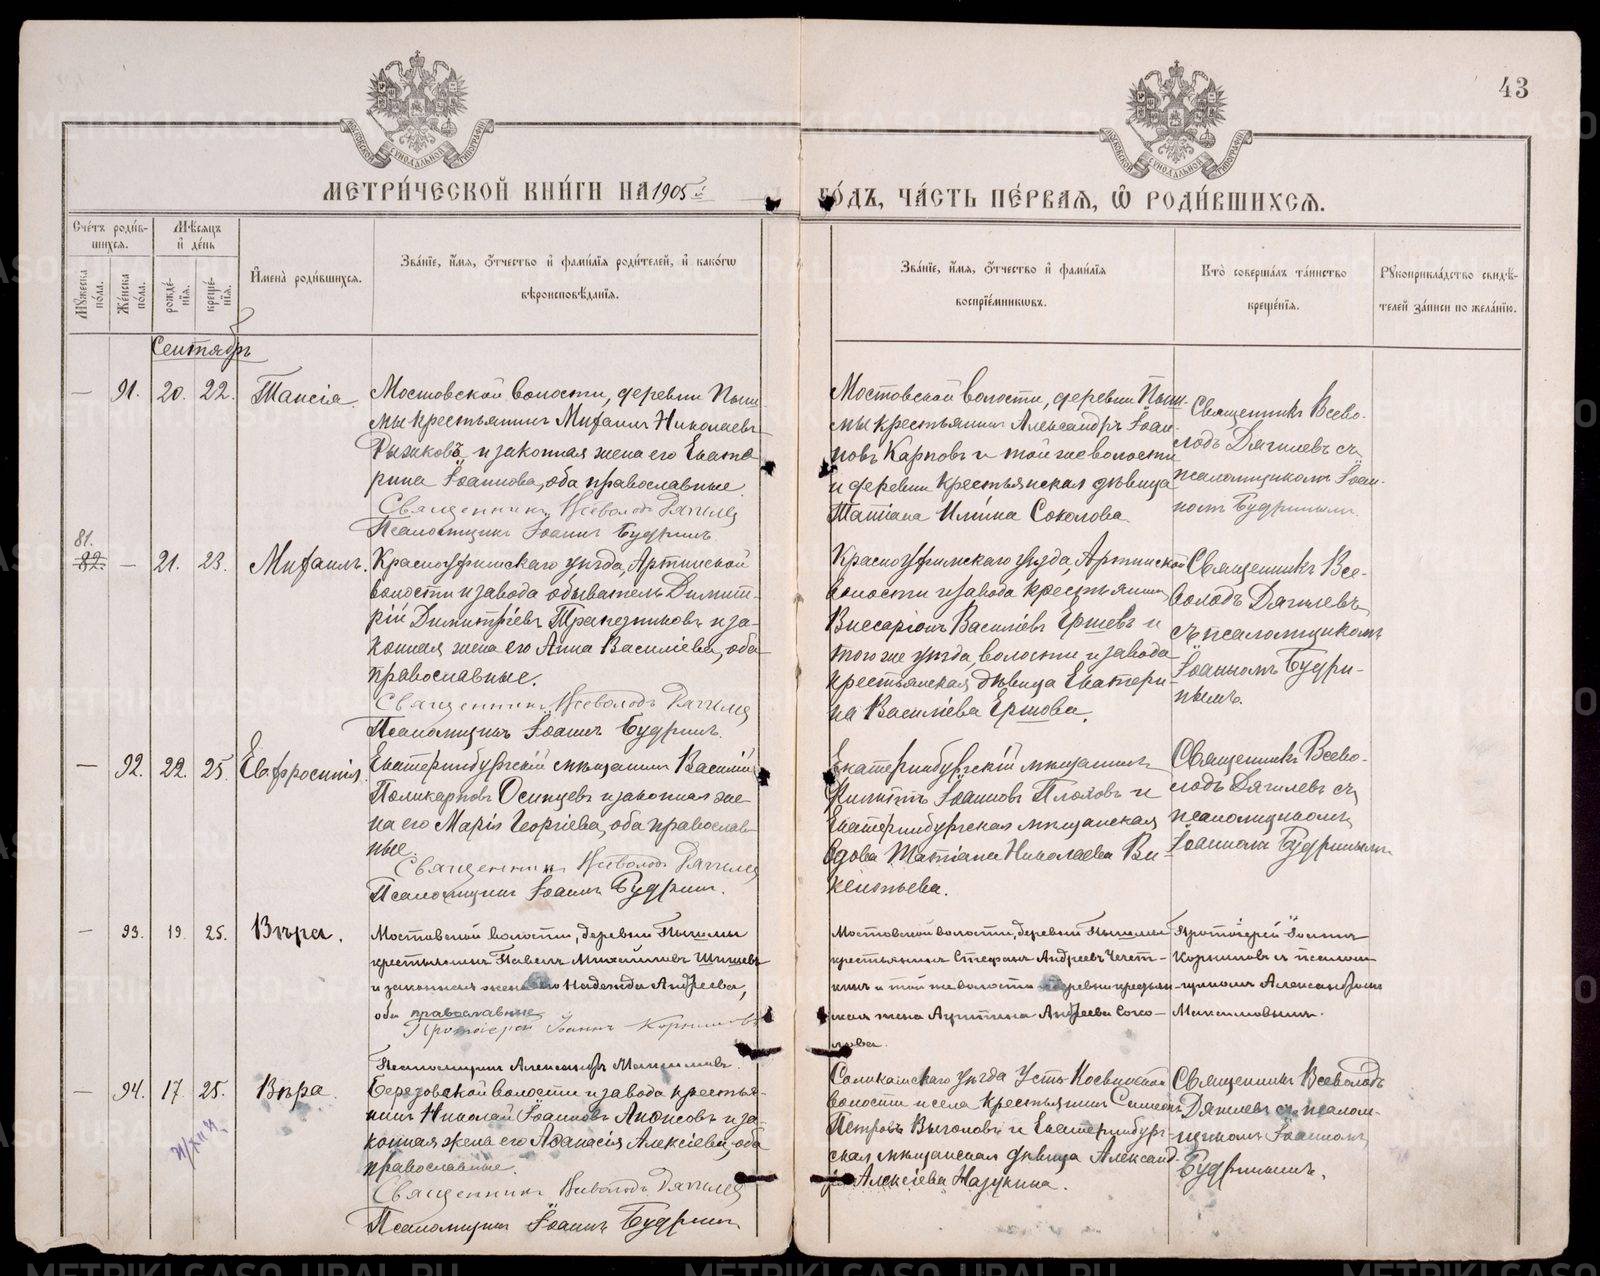 43
МЕТРИ́ЧЕСКОЙ КНИ́ГИ НА 1905 й
ГО́ДЪ, ЧА́СТЬ ПЕ́РВАЯ, Ѡ РОДИ́ВШИХСЯ.
Счетъ роди́в-
шихся.
Мѣсяцъ
и де́нь
Мужеска по́ла.
Женска по́ла.
рожде́-
нія.
креще́-
нія.
Имена̀ роди́вшихся.
Зва́ніе, и́мя, о́тчество и фами́лія роди́телей, и како́гѡ
вѣроисповѣ́данія.
Зва́ніе, и́мя, о́тчество и фами́лія
воспріе́мниковъ.
Кто̀ соверша́лъ та́инство
креще́нія.
Рукоприкла́дство свидѣ́-
телей за́писи по жела́нію.
Сентябрь
— 91. 20. 22. Таисія.
Мостовской волости, деревни Пыш-
мы крестьянинъ Михаилъ Николаевъ
Рыжковъ и законная жена его Екате-
рина Іоаннова, оба православные.
Священникъ Всеволодъ Дягилев
Псаломщикъ Іоаннъ Будринъ.
Мостовской волости, деревни Пыш-
мы крестьянинъ Александръ Іоан-
новъ Карповъ и той же волости
и деревни крестьянская дѣвица
Татіана Ильина Соколова.
Священникъ Всево-
лодъ Дягилевъ съ
псаломщикомъ Іоан-
номъ Будринымъ.
81.
82. — 21. 23. Михаилъ.
Красноуфимскаго уѣзда, Артинской
волости и завода обыватель Димит-
рій Димитріевъ Трапезниковъ и за-
конная жена его Анна Василіева, оба
православные.
Священникъ Всеволодъ Дягилев
Псаломщикъ Іоаннъ Будринъ.
Красноуфимскаго уѣзда, Артинской
волости и завода крестьянинъ
Виссаріонъ Василіевъ Ершевъ и
того же уѣзда, волости и завода
крестьянская дѣвица Екатери-
на Василіева Ершова.
Священникъ Все-
володъ Дягилевъ
съ псаломщикомъ
Іоанномъ Будри-
нымъ.
— 92. 22. 25. Евфросинія.
Екатеринбургскій мѣщанинъ Василій
Поликарповъ Осинцевъ и законная же-
на его Марія Георгіева, оба православ-
ные.
Священникъ Всеволодъ Дягилев
Псаломщикъ Іоаннъ Будринъ.
Екатеринбургскій мѣщанинъ
Филиппъ Іоанновъ Плоховъ и
Екатеринбургская мѣщанская
вдова Татіана Николаева Ви-
кентьева.
Священникъ Всево-
лодъ Дягилевъ съ
псаломщикомъ
Іоанномъ Будринымъ
— 93. 19. 25. Вѣра.
Мостовской волости, деревни Пышмы
крестьянинъ Павелъ Михайловъ Шишевъ
и законная жена его Надежда Андреева,
оба православные.
Протоіерей Іоаннъ Корниловъ
Псаломщикъ Александръ Максимовъ.
Мостовской волости, деревни Пышмы
крестьянинъ Стефанъ Андреевъ Чечет-
кинъ и той же волости и деревни крестьян-
ская жена Андреева Соко-
лова.
Протоіерей Іоаннъ
Корниловъ и псалом-
щикомъ Александромъ
Максимовымъ.
— 94. 17. 25. Вѣра.
Березовской волости и завода крестья-
нинъ Николай Іоанновъ Анисовъ и за-
конная жена его Аѳанасія Алексіева, оба
православные.
Священникъ Всеволодъ Дягилев
Псаломщикъ Іоаннъ Будринъ
Соликамскаго уѣзда Усть-Косвинской
волости и села крестьянинъ Симеонъ
Петровъ Выголовъ и Екатеринбург-
ская мѣщанская дѣвица Александ-
ра Алексіева Назукина.
Священникъ Всеволодъ
Дягилевъ съ псалом-
щикомъ Іоанномъ
Будринымъ.